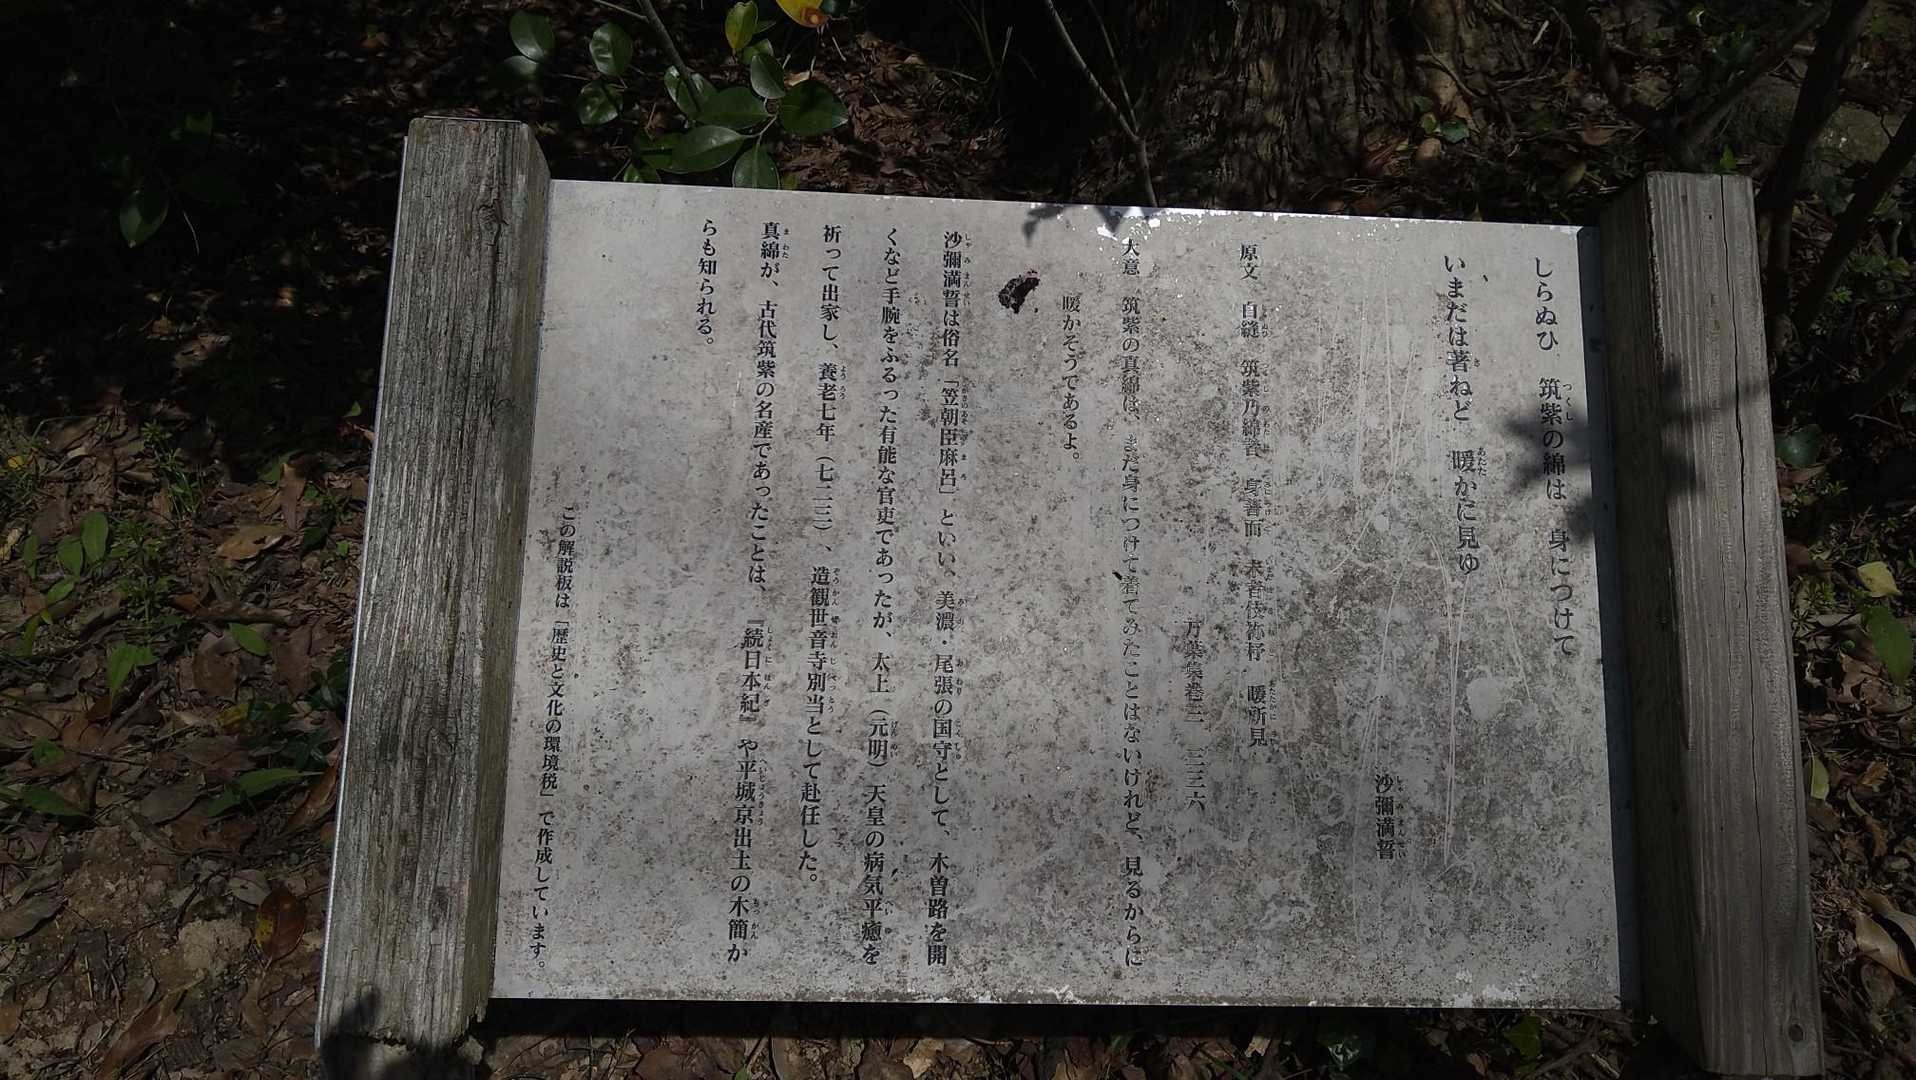 しらぬひ 筑紫の綿は 身につけて
いまだは著ねど 暖かに見ゆ
沙彌満誓
原文 白縫 筑紫乃綿者 身著而 未者伎袮杼 暖所見
万葉集巻三 三三六
大意 筑紫の真綿は、まだ身につけて着てみたことはないけれど、見るからに
暖かそうであるよ。
沙彌満誓は俗名「笠朝臣麻呂」といい、美濃・尾張の国守として、木曽路を開
くなど手腕をふるった有能な官吏であったが、太上（元明）天皇の病気平癒を
祈って出家し、養老七年（七二三）、造観世音寺別当として赴任した。
真綿が、古代筑紫の名産であったことは、『続日本紀』や平城京出土の木簡か
らも知られる。
この解説板は「歴史と文化の環境税」で作成しています。